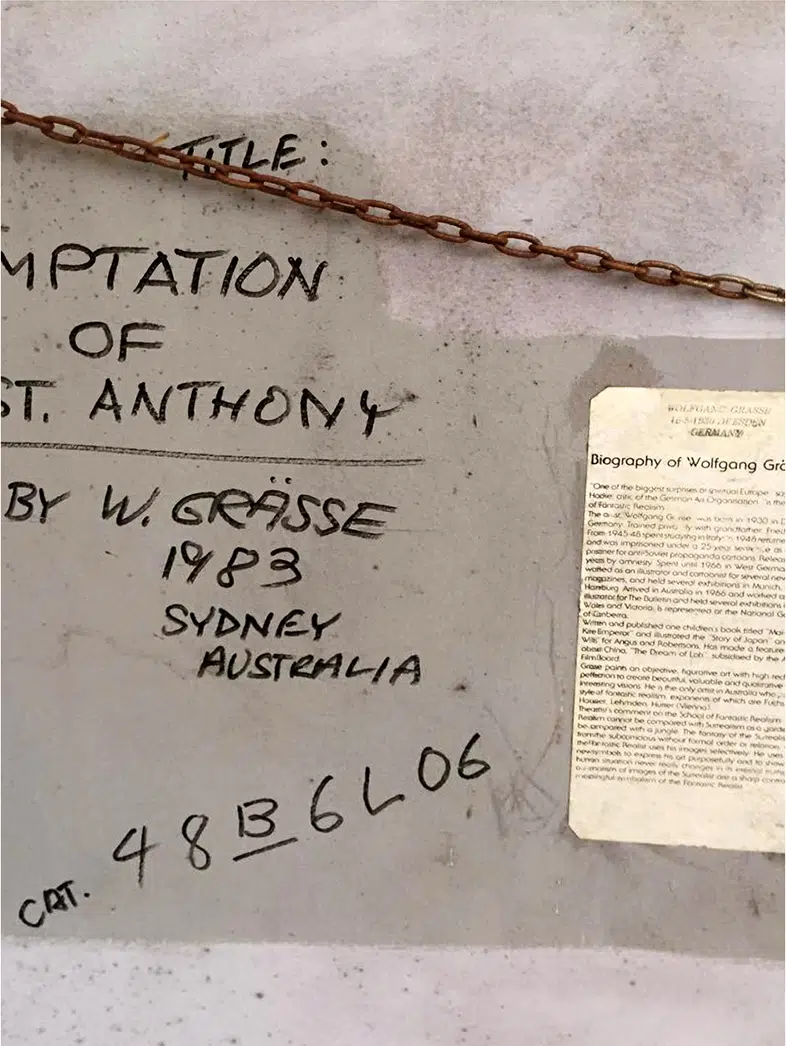 TITLE:
MPTATION
OF
ST. ANTHONY
BY W. GRÄSSE
1983
SYDNEY
AUSTRALIA
CAT. 48B6L06
WOLFGANG GRASSE
1930 DRESDEN
GERMANY
Biography of Wolfgang Grä
"One of the biggest surprises of spiritual Europe"
critic of the German Art Organisation
of Fantastic Realism
Wolfgang was born in 1930 in D
Germany. Trained with grandfather
From 1945-48 spent studying in Italy. 1948 returne
and was imprisoned under a 25 year sentence as
prisoner for anti-Soviet propaganda cartoons. Releas
years by amnesty. Spent until 1966 in West Germa
worked as an illustrator and cartoonist for several new
magazines, and held several exhibitions in Munich,
Hamburg. Arrived in Australia in 1966 and worked a
illustrator for The Bulletin and held several exhibitions i
Wales and Victoria. Is represented at the National G
of Canberra.
Written and published one children's book titled
Kite Emperor" and illustrated the "Story of Japan" an
Wills" for Angus and Robertsons. Has made a feature
about China, "The Dream of Loh" subsidised by the A
Film Board.
Grasse paints an objective, figurative art with high
to create beautiful, valuable and qualitative
interesting visions. He is the only artist in Australia who
style of fantastic realism, exponents of which are Fuchs
Hausner, Lehmden, Hutter (Vienna).
The artist's comment on the School of Fantastic Realism
Realism cannot be compared with Surrealism as a garde
be compared with a jungle. The fantasy of the Surrealis
from the subconscious without formal order or
the Fantastic Realist uses his images selectively. He uses
new symbols to express his art purposefully and to show
human situation never really changes in its
of images of the Surrealist are a sharp contra
meaningful symbolism of the Fantastic Realist